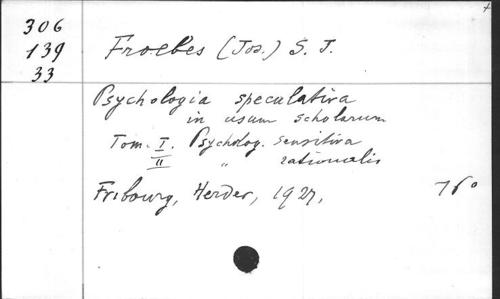 306
139
33
Froebes (Jos.) S. J.
Psychologia speculativa
in usum scholarum
Tom. I. Psycholog. sensitiva
II " rationalis
Fribourg, Herder, 1927,